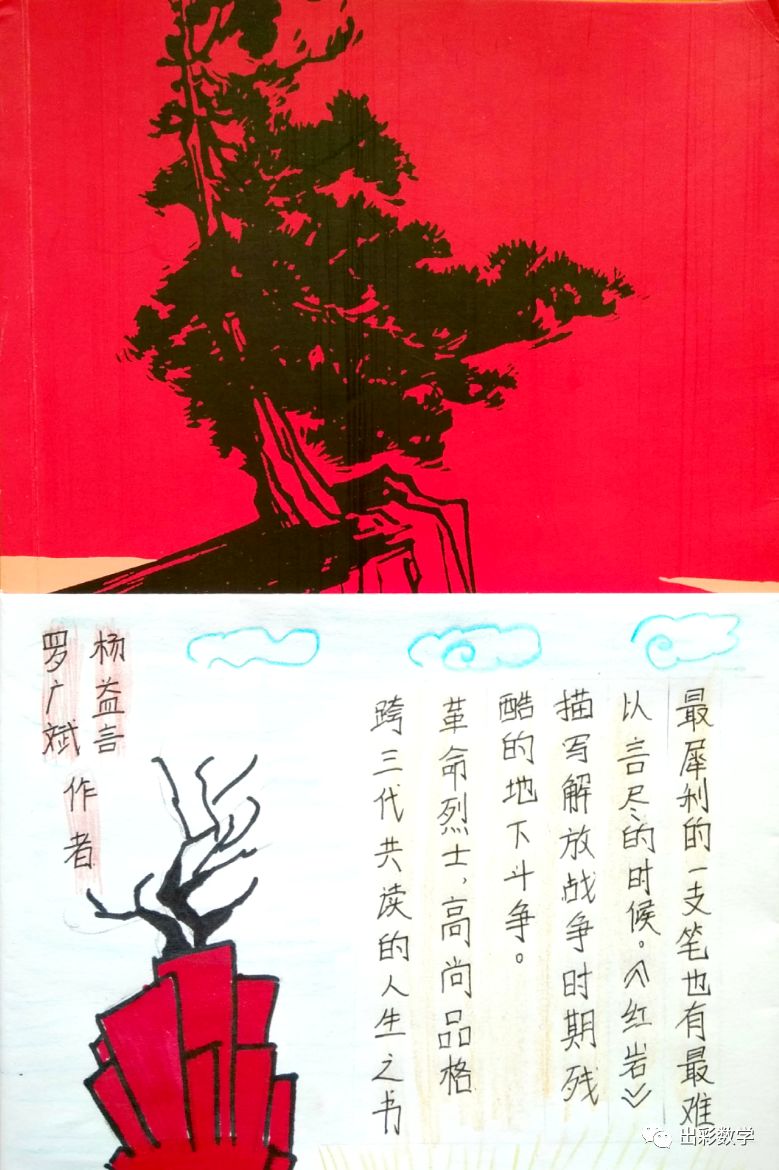 最犀利的一支笔也有最难
以言尽的时候。《红岩》
描写解放战争时期残
酷的地下斗争。
革命烈士，高尚品格
跨三代共读的人生之书
杨益言
罗广斌
作者
出彩数学